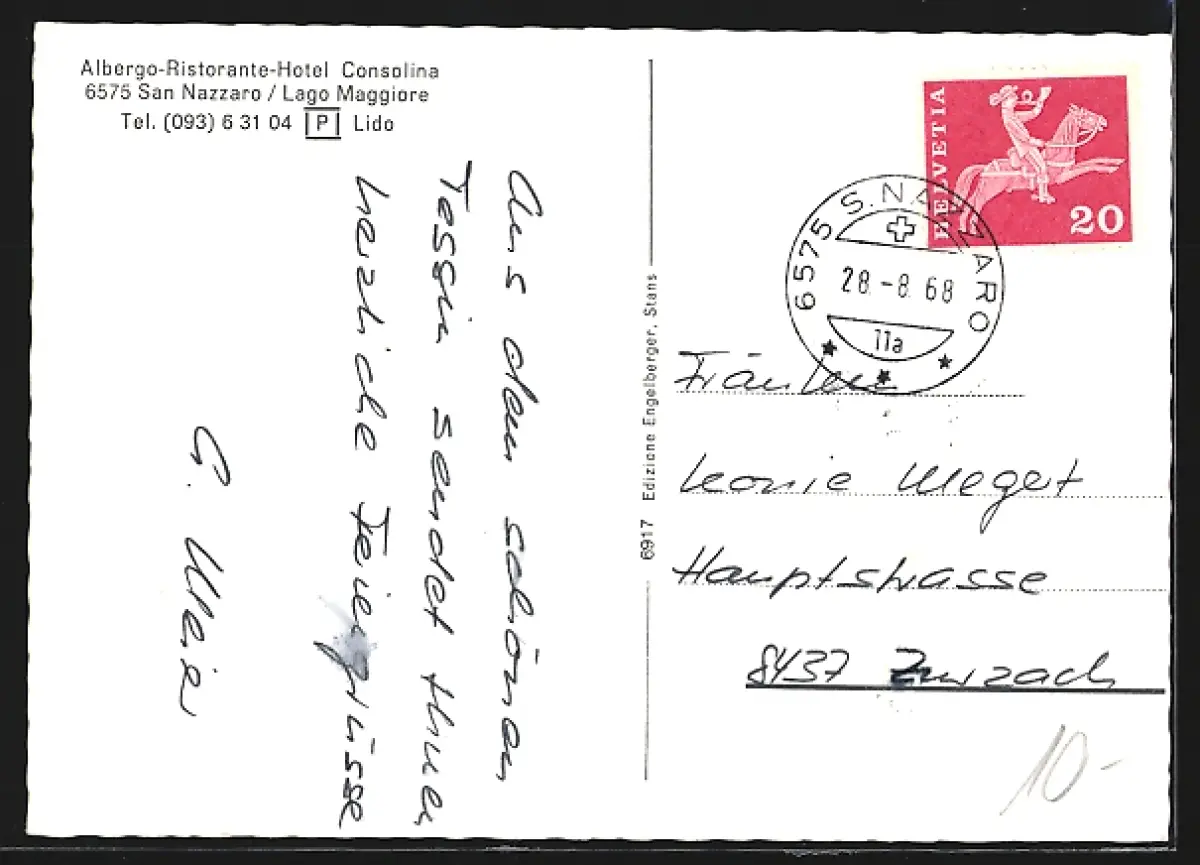 Albergo-Ristorante-Hotel Consolina
6575 San Nazzaro / Lago Maggiore
Tel. (093) 6 31 04 P Lido
Aus dem schönen
Tessin sendet Ihnen
herzliche Feriengrüsse
G. Meier
6917 Edizione Engelberger, Stans
HELVETIA
20
6575 S. NAZZARO
28.-8.68
11a
Fräulein
Leonie Megert
Hauptstrasse
8437 Zurzach
10-